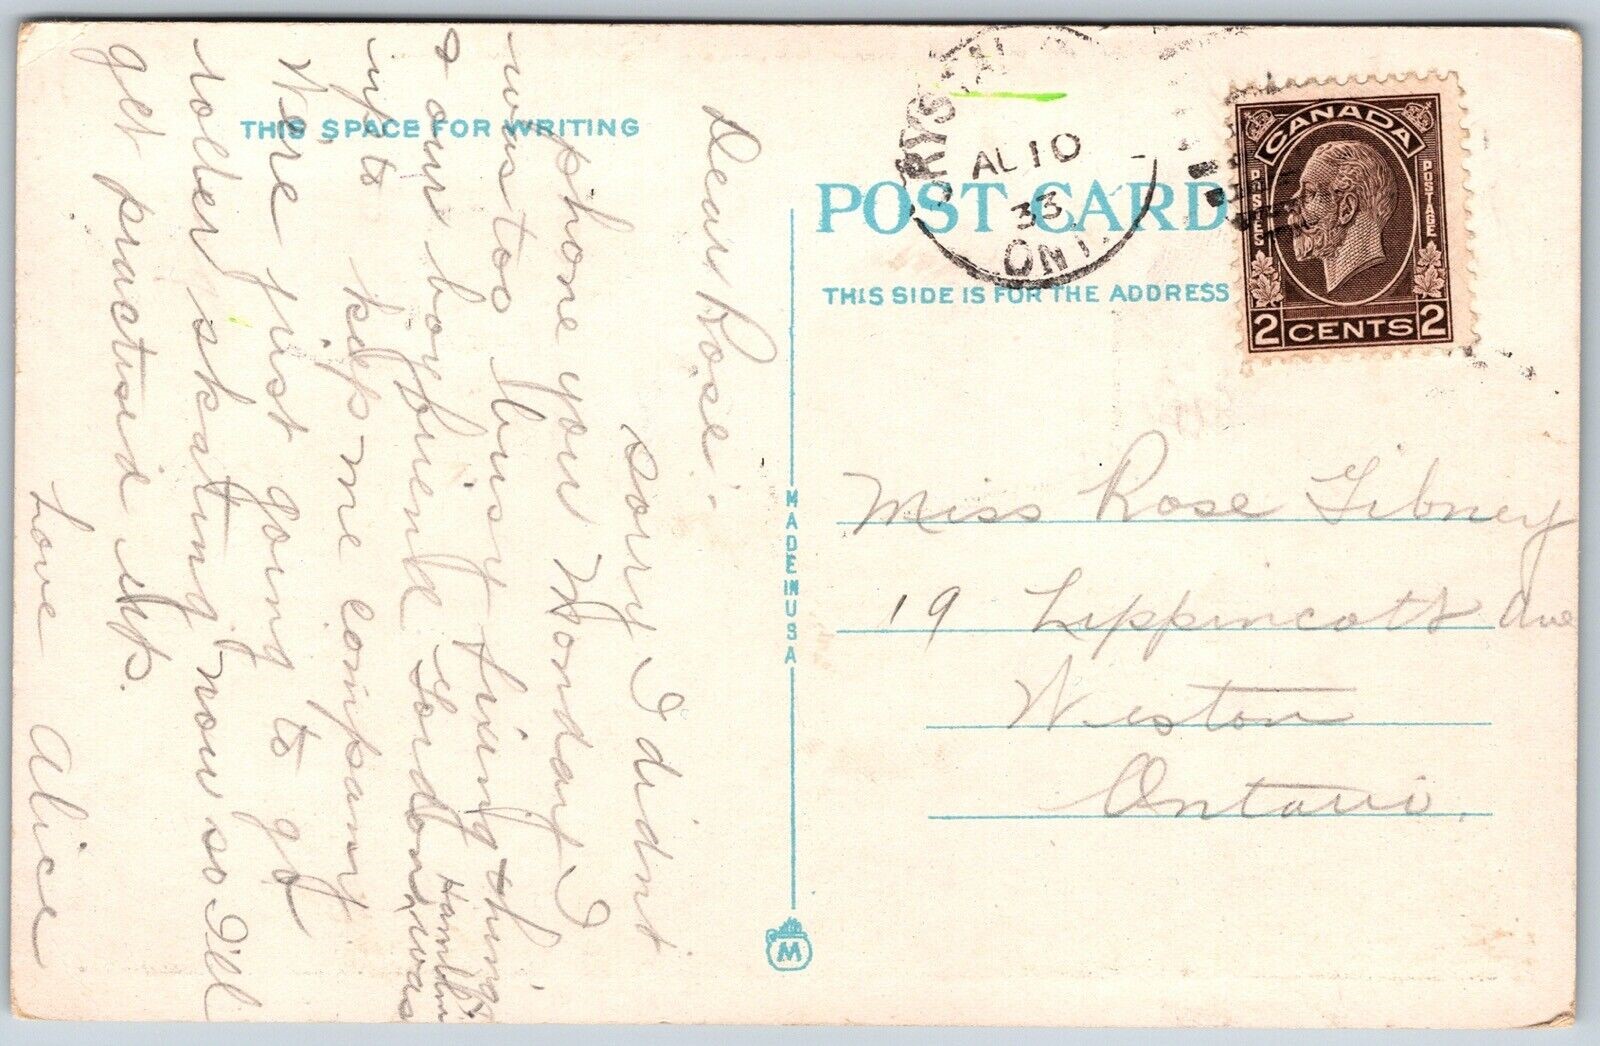 THIS SPACE FOR WRITING
Dear Rose:-
Sorry I didnt
phone you Monday I
was too busy fixing things
& our boyfriend Gordon Hamilton was
up to keep me company
We're just going to go
roller skating now so I'll
get practised up.
Love Alice
MADE IN USA
M
POST CARD
THIS SIDE IS FOR THE ADDRESS
CRYSTAL
AL 10
33
ONT.
CANADA
POSTES
POSTAGE
2 CENTS 2
Miss Rose Gibney
19 Lippincott Ave
Weston
Ontario.